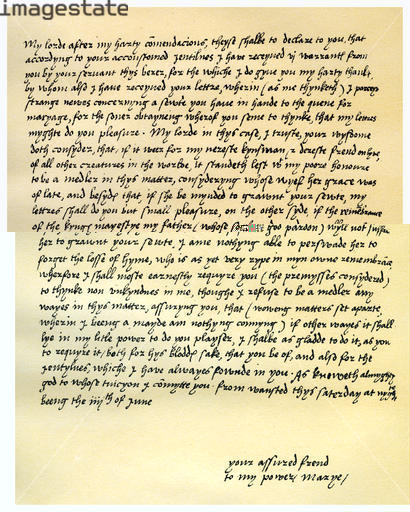 imagestate
My lorde after my harty comendacions, theyse shalbe to declare to you, that
accordyng to your accustomed jentilnes I have receyved vj warrants from
you by your servant thys berer, for the whiche I do gyve you my harty thankes,
by whom also I have receyved your lettre, wherin (as me thynketh) I perceyve
strange newes concernyng a sewte you have in hande to the quene for
maryage, for the soner obteynyng wherof you seme to thynke that my lettres
myght do you pleasure. My lorde in thys case, I truste, your wysdome
doth consyder, that, if it wer for my nereste kynsman & dereste frend on lyve,
of all other creatures in the worlde, it standeth lest wt my poore honoure
to be a medler in thys matter, consyderyng whose wyef her grace was
of late, and besyds that if she be mynded to graunt your sewte, my
lettres shall do you but small pleasure. on the other syde if the remembrance
of the kyngs mayestye my father (whose god pardon) wyll not suffer
her to graunt your sewte, I ame nothyng able to perswade her to
forget the losse of hyme, who is as yet very rype in myn owne remembrance
wherfore I shall moste earnestly requyre you (the premysses consydered)
to thynke non unkyndnes in me, thoughe I refuse to be a medler any
wayes in thys matter, assuryng you, that (woweng matters set aparte,
wherin I beeng a mayde am nothyng connyng) if other wayes it shall
lye in my litle power to do you playser, I shalbe as gladde to do it, as you
to requyre it, both for hys blodds sake, that you be of, and also for the
jentylnes, whiche I have alwayes fownde in you. As knoweth almyghty
god to whose tuicyon I comytte you. from wansted thys saterday at nyght
beeng the iiijth of June
your assured frend
to my power Marye